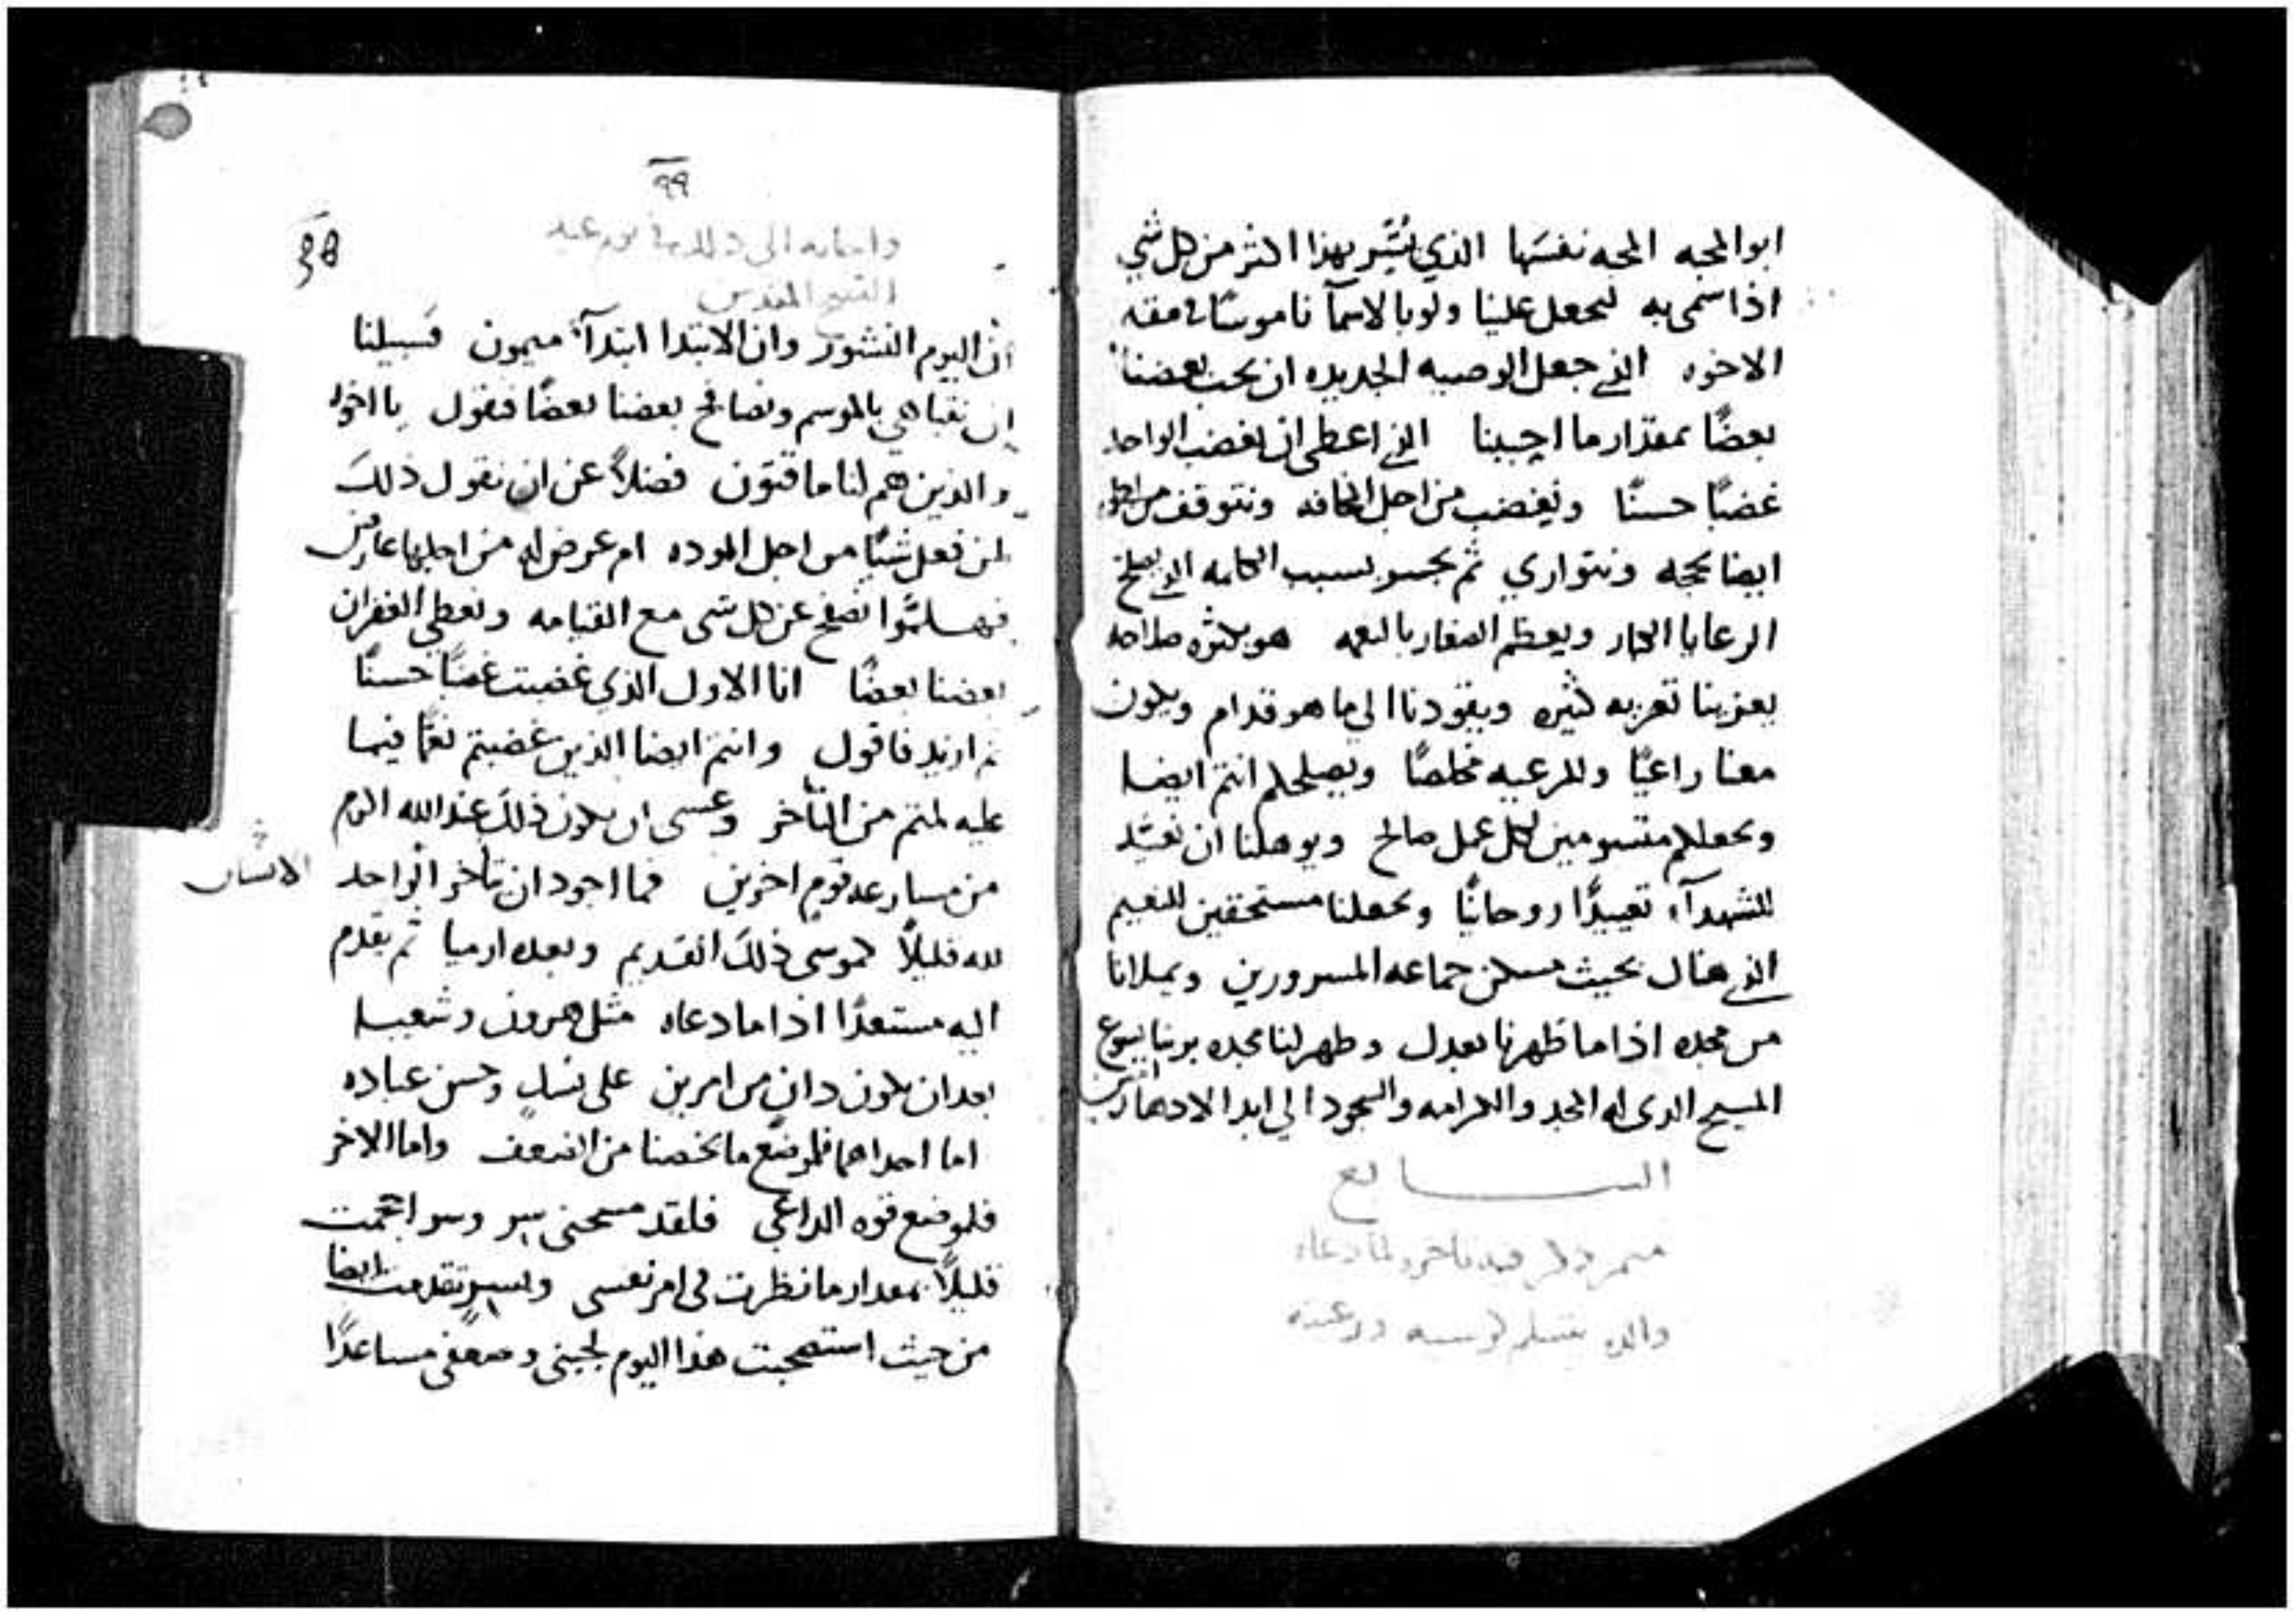 ابو المحبه المحبه نفسَها الذي يُسَّر بهذا اكثر من كل شي
اذا سمى به ليجعل علينا ولو بالاسمآ ناموسًا في مقه
الاخوه الذي جعل الوصيه الجديده ان نحب بعضنا
بعضًا بمقدار ما احببنا الذي اعطى ان نغضب الواحد
غضبًا حسنًا ونغضب من اجل المخافه ونتوقف من اجلها
ايضا بحجه ونتواري ثم نجسر بسبب الكلمه الذي يصلح
الرعايا الكبار ويعظم الصغار بالنعمه هو بكثره صلاحه
يعزينا تعزيه كثيره ويقودنا الي ما هو قدام ويكون
معنا راعيًا وللرعيه مخلصًا ويصلحكم انتم ايضا
ويجعلكم متسومين لكل عمل صالح ويوهلنا ان نعيّد
للشهدآء تعييدًا روحانيًا ويجعلنا مستحقين للنعيم
الذي هناك بحيث مسكن جماعه المسرورين ويملانا
من مجده اذا ما ظهرنا بعدل وظهر لنا مجده بربنا يسوع
المسيح الذى له المجد والكرامه والسجود الي ابد الادهار امين
الســـابع
ميمر ذكر فيه تاخره لما دعاه
والده
٩٩
38
واجابه الى ذلك في يوم عيد
الفصح المقدس
ان اليوم النشور وان الابتدا ابتدآء ميمون فسبيلنا
ان نتباهي بالموسم ونصافح بعضنا بعضًا فنقول يا اخوه
والذين هم لنا ماقتون فضلاً عن ان نقول ذلك
لمن فعل شيًا من اجل الموده ام عرض له من اجلها عارض
فهـلمّوا نصفح عن كل شى مع القيامه ونعطي الغفران
بعضنا بعضًا انا الاول الذي غضبت غضبًا حسنًا
ثم ازيد فاقول وانتم ايضا الذين غضبتم نعمًا فيما
عليه لمتم من التأخر وعسى ان يكون ذلك عند الله اكرم
من مسارعه قوم اخرين فما اجود ان يتاخر الواحد الانسان
لله قليلاً كموسى ذلك القديم وبعده ارميا ثم يقدم
اليه مستعدًا اذا ما دعاه مثل هرون وشعيـا
بعد ان يكون ذان من امرين على نسك وحسن عباده
اما احداهما فلموضع ما يخصنا من الضعف واما الاخر
فلموضع قوه الداعي فلقد مسحنى سر وسر احجمت
قليلاً بمقدار ما نظرت فى امر نفسى وبسر تقدمت ايضا
من حيث استصحبت هذا اليوم لجبنى وضعفى مساعدًا